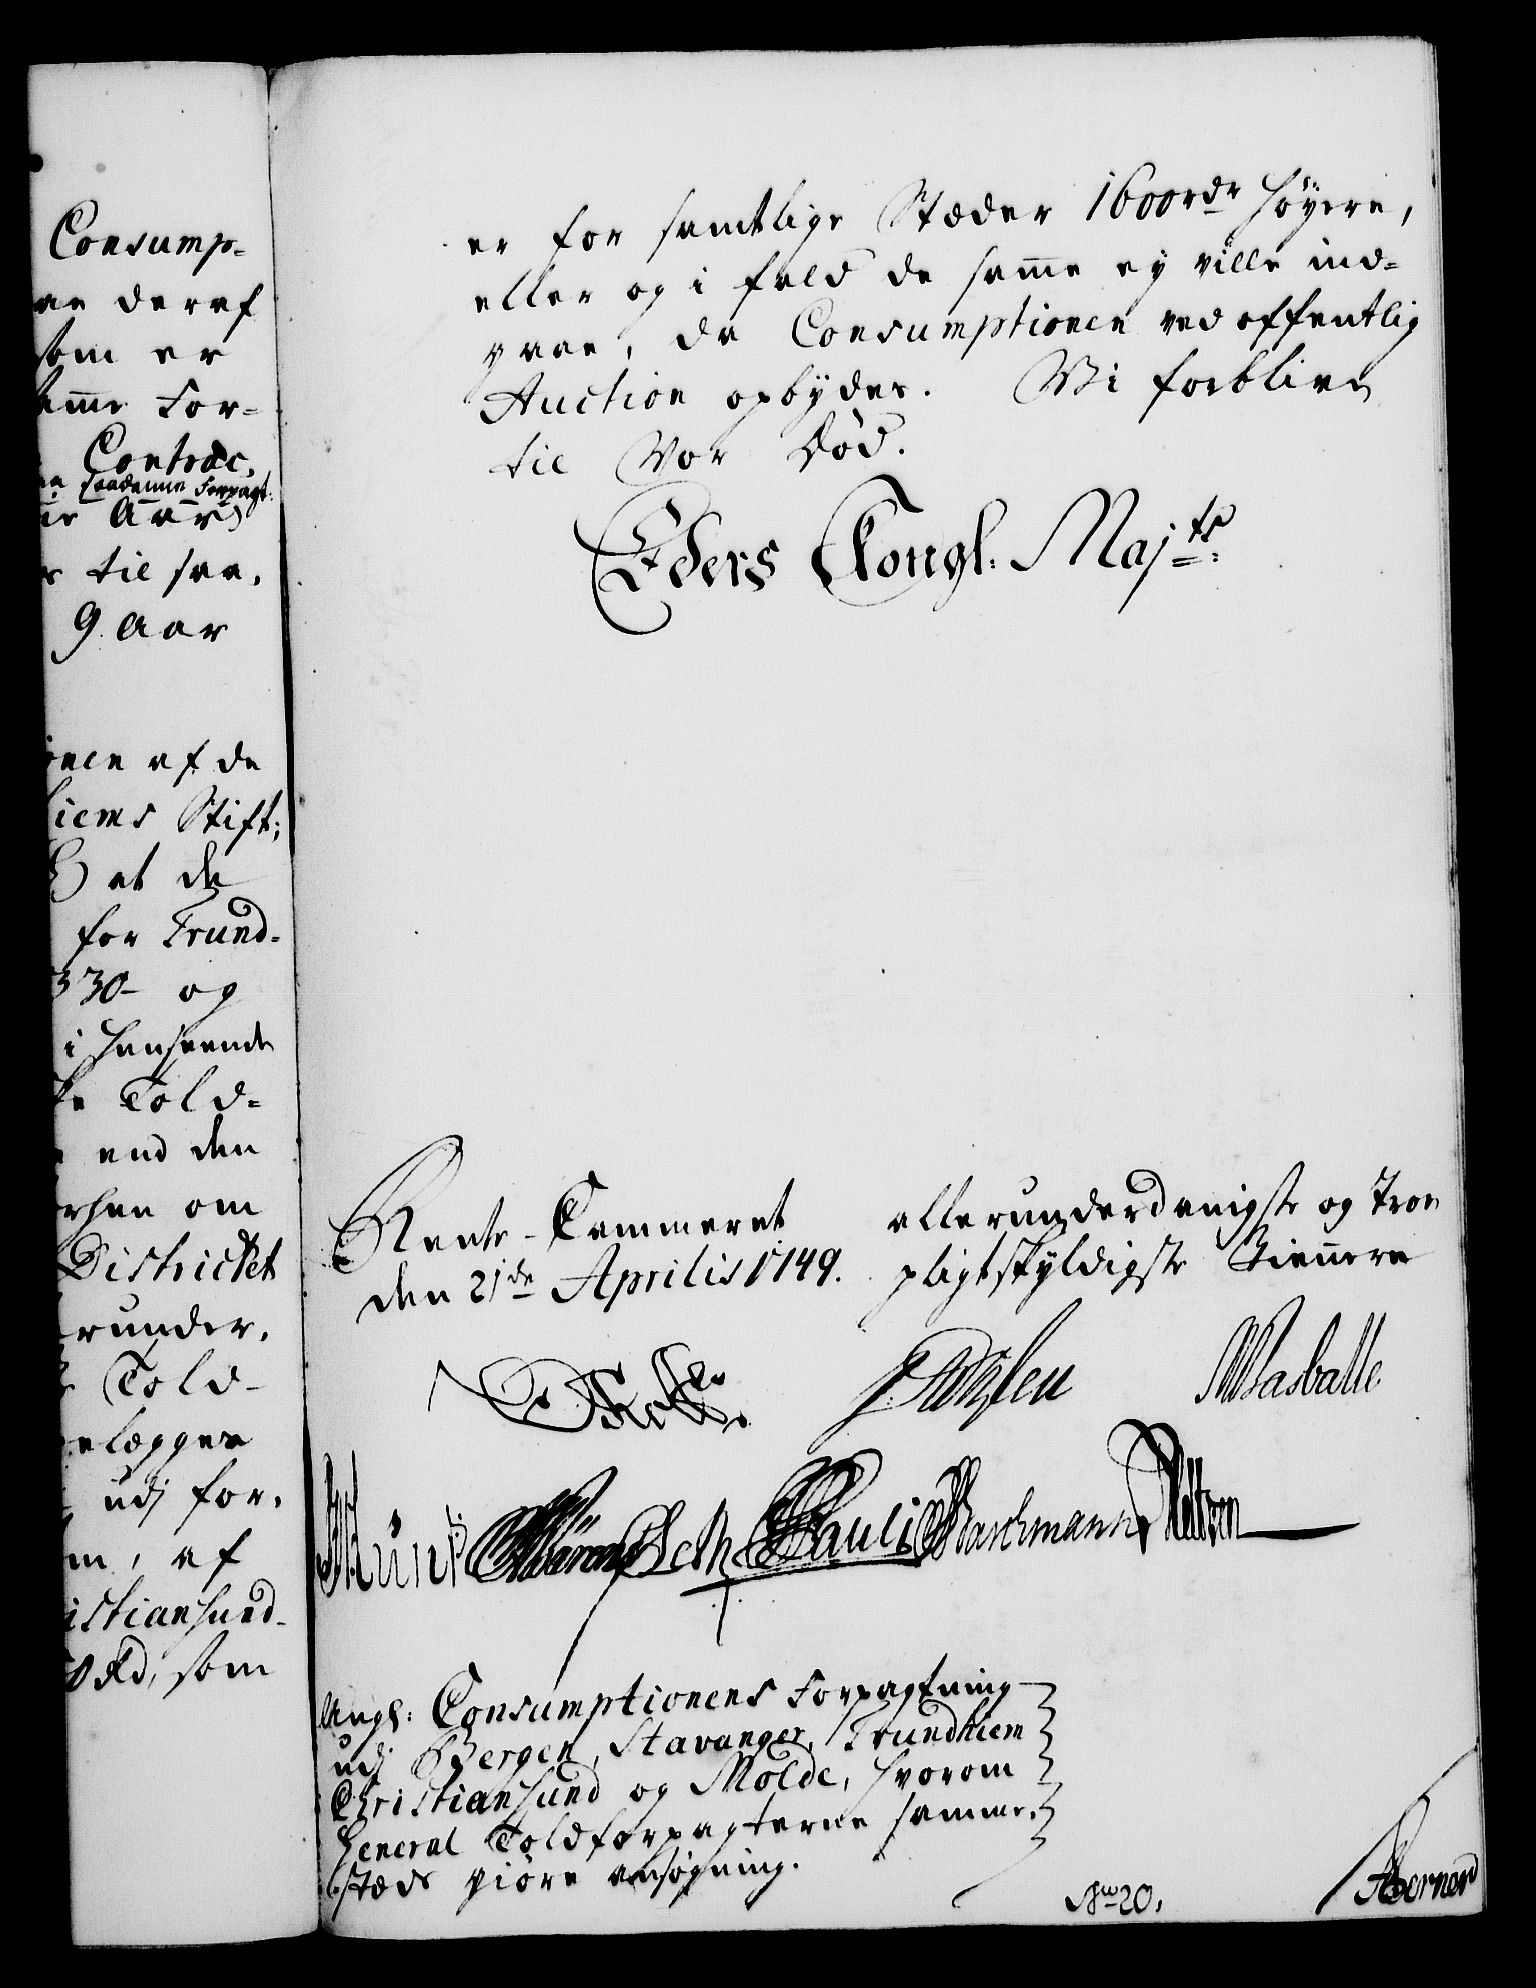 Consump-
deraf
som er
For-
Contrac,
saadanne Forpagt:
Aars
til saa,
9 Aar
af de
hiems Stift;
at de
for Trund-
330 og
i henseende
Told-
end den
om
Districtet
runder,
Told-
elægges
udj for,
af
istiansund-
Rd, som
er for samtlige Stæder 1600 rdr høyere,
eller og i fald de samme ey ville ind-
gaae, da Consumptionen ved offentlig
Auction opbydes. Wi forblive
til Vor Död.
Eders Kongl. Majts:
Rente-Cammeret
den 21de Aprilis 1749.
allerunderdanigste og troe
pligtskyldigste Tienere
Wasballe
Seth Pauli Marchmann
Angl: Consumptionens Forpagtning
udj Bergen, Stavanger, Trundhiem
Christiansund og Molde, hvorom
General Toldforpagterne samme,
stæds giöre ansögning.
No 20.
Berner